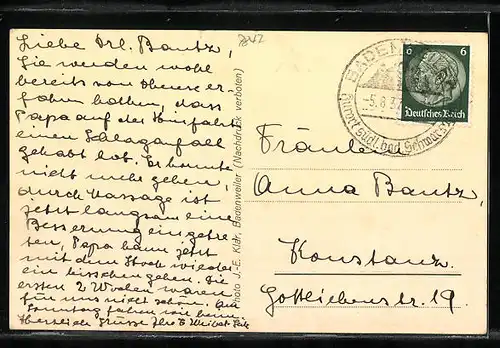 Liebe Frl. Bantz,
Sie werden wohl
bereits von
fahren hatten, dass
Papa auf der Hinfahrt
einen Schlaganfall
gehabt hat. Er konnte
nicht mehr gehen,
durch Massage ist
jetzt langsam eine
Besserung eingetre
ten, Papa kann jetzt
mit dem Stock wieder
ein bisschen gehen. Die
ersten 2 Wochen waren
für uns nicht schön. Am
Sonntag fahren wir heim.
Herzliche Grüsse Ihre
Photo J. E. Kldt, Badenweiler (Nachdruck verboten)
BADENW
-5.8.37
Kurort südl. bad. Schwarzw
6 6
Deutsches Reich
Fräulein
Anna Bantz,
Konstanz.
Gottliebenstr. 19.